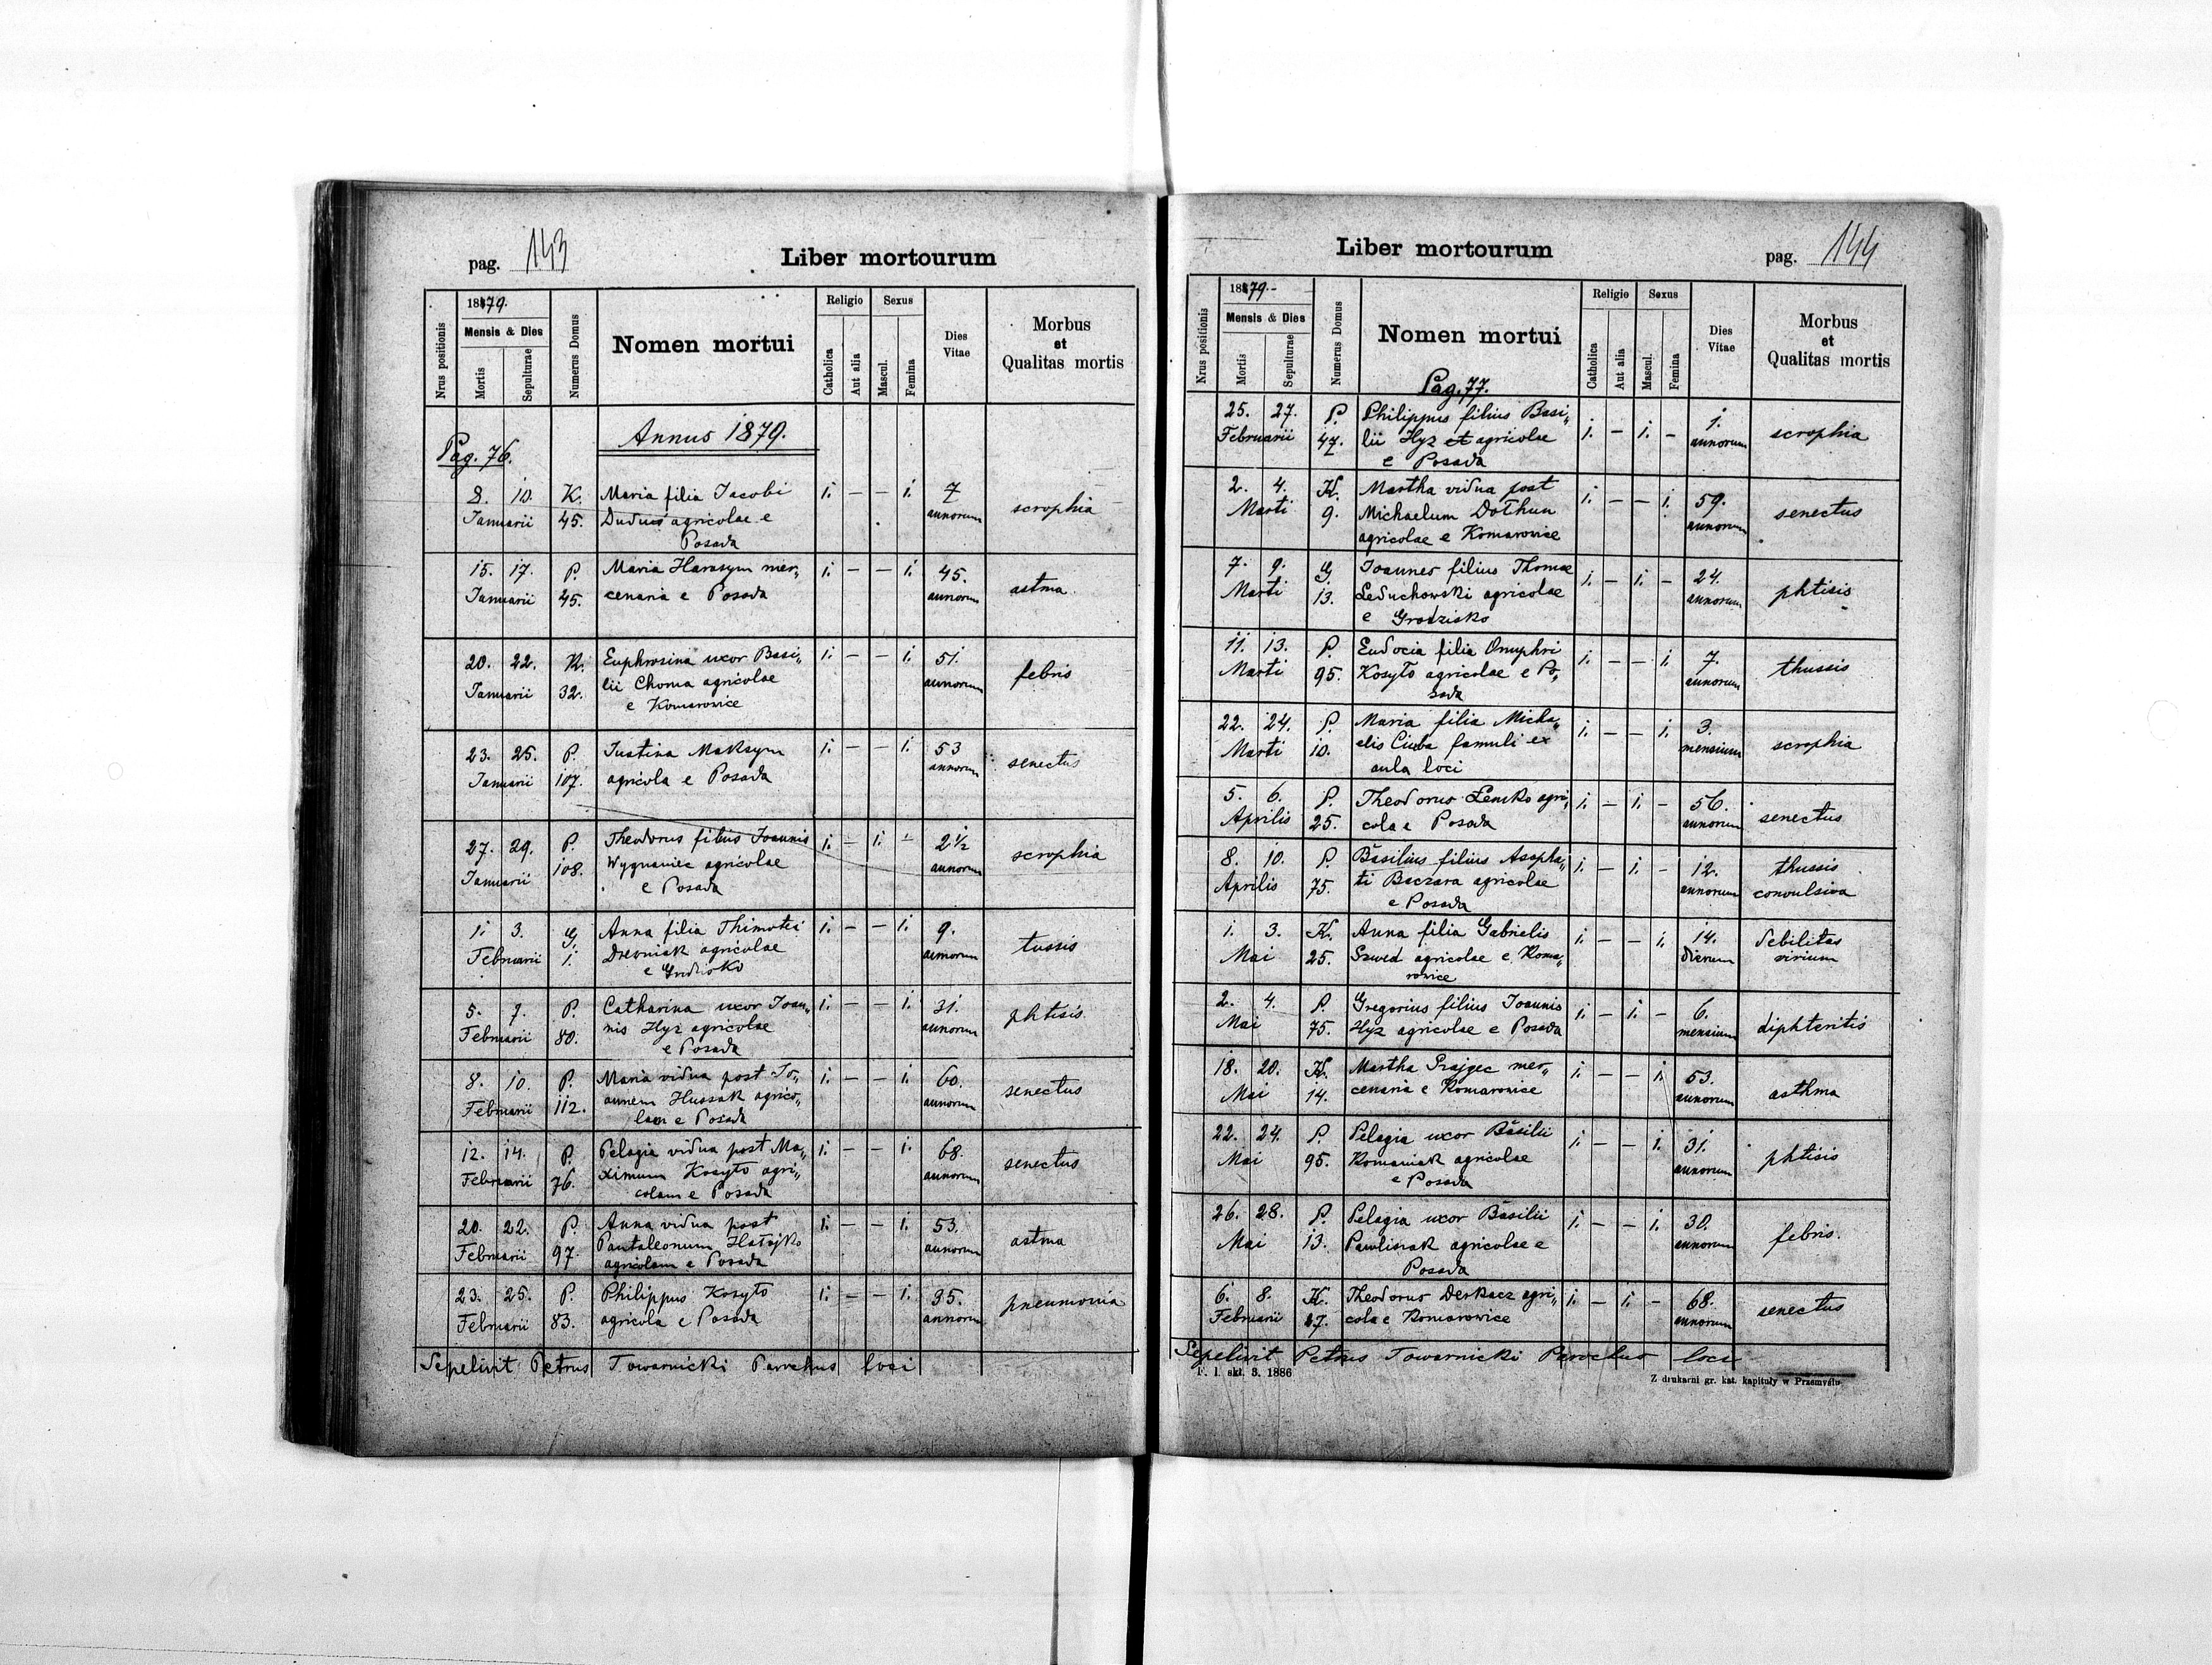 pag. 143
Liber mortourum
Nrus positionis
1879.
Mensis & Dies
Mortis
Sepulturae
Numerus Domus
Nomen mortui
Religio
Catholica
Aut alia
Sexus
Mascul.
Femina
Dies
Vitae
Morbus
et
Qualitas mortis
Annus 1879.
Pag. 76.
8. 10. K. Maria filia Jacobi 1. — — 1. 7 scrophia
Januarii 45. agricolae e annorum
Posada
15. 17. P. Maria Harasym mer„ 1. — — 1. 45. astma
Januarii 45. cenaria e Posada annorum
20. 22. K. Euphrosina uxor Basi„ 1. — — 1. 51. febris
Januarii 32. lii Choma agricolae annorum
e Komarowice
23. 25. P. Justina Maksym 1. — — 1. 53 senectus
Januarii 107. agricola e Posada annorum
27. 29. P. Theodorus filius Joannis 1. — 1. — 2 1/2 scrophia
Januarii 108. Wygnaniec agricolae annorum
e Posada
1. 3. G. Anna filia Thimotei 1. — — 1. 9. tussis
Februarii 1. Drewniak agricolae annorum
e
5. 7. P. Catharina uxor Joan„ 1. — — 1. 31. phtisis
Februarii 80. nis Hyz agricolae annorum
e Posada
8. 10. P. Maria vidua post Jo„ 1. — — 1. 60. senectus
Februarii 112. annem Hussak agrico„ annorum
lam e Posada
12. 14. P. Pelagia vidua post Ma„ 1. — — 1. 68. senectus
Februarii 76. ximum Kosyło agri„ annorum
colam e Posada
20. 22. P. Anna vidua post 1. — — 1. 53. astma
Februarii 97. Pantaleonum Hałajko annorum
agricolam e Posada
23. 25. P. Philippus Kosyło 1. — — 1. 35. pneumonia
Februarii 83. agricola e Posada annorum
Sepelivit Petrus Towarnicki Parochus loci
Liber mortourum
pag. 144
Nrus positionis
1879.-
Mensis & Dies
Mortis
Sepulturae
Numerus Domus
Nomen mortui
Religio
Catholica
Aut alia
Sexus
Mascul.
Femina
Dies
Vitae
Morbus
et
Qualitas mortis
Pag. 77.
25. 27. P. Philippus filius Basi„ 1. — 1. — 1. scrophia
Februarii 47. lii Hyz agricolae annorum
e Posada
2. 4. K. Martha vidua post 1. — — 1. 59. senectus
Marti 9. Michaelum Dołhun annorum
agricolae e Komarowice
7. 9. G. Joannes filius Thomae 1. — 1. — 24. phtisis
Marti 13. Leduchowski agricolae annorum
e Grodzisko
11. 13. P. Eudocia filia Onuphri 1. — — 1. 7. thussis
Marti 95. Kosyło agricolae e Po„ annorum
sada
22. 24. P. Maria filia Micha„ 1. — — 1. 3. scrophia
Marti 10. elis Ciuba famuli ex mensium
aula loci
5. 6. P. Theodorus Lenko agri„ 1. — 1. — 56. senectus
Aprilis 25. cola e Posada annorum
8. 10. P. Basilius filius Asapha„ 1. — 1. — 12. thussis
Aprilis 75. ti Baczara agricolae annorum convulsiva
e Posada
1. 3. K. Anna filia Gabrielis 1. — — 1. 14. debilitas
Mai 25. Szwed agricolae e Koma„ dierum virium
rowice
2. 4. P. Gregorius filius Joannis 1. — 1. — 6. diphteritis
Mai 75. Hyz agricolae e Posada mensium
18. 20. K. Martha Prajzec mer„ 1. — — 1. 53. asthma
Mai 14. cenaria e Komarowice annorum
22. 24. P. Pelagia uxor Basilii 1. — — 1. 31. phtisis
Mai 95. Romaniak agricolae annorum
e Posada
26. 28. P. Pelagia uxor Basilii 1. — — 1. 30. febris.
Mai 13. Pawlisiak agricolae e annorum
Posada
6. 8. K. Theodorus Derkacz agri„ 1. — 1. — 68. senectus
Februarii 17. cola e Komarowice annorum
Sepelivit Petrus Towarnicki Parochus loci
F. 1. skt. 3. 1886
Z drukarni gr. kat. kapituły w Przemyślu.